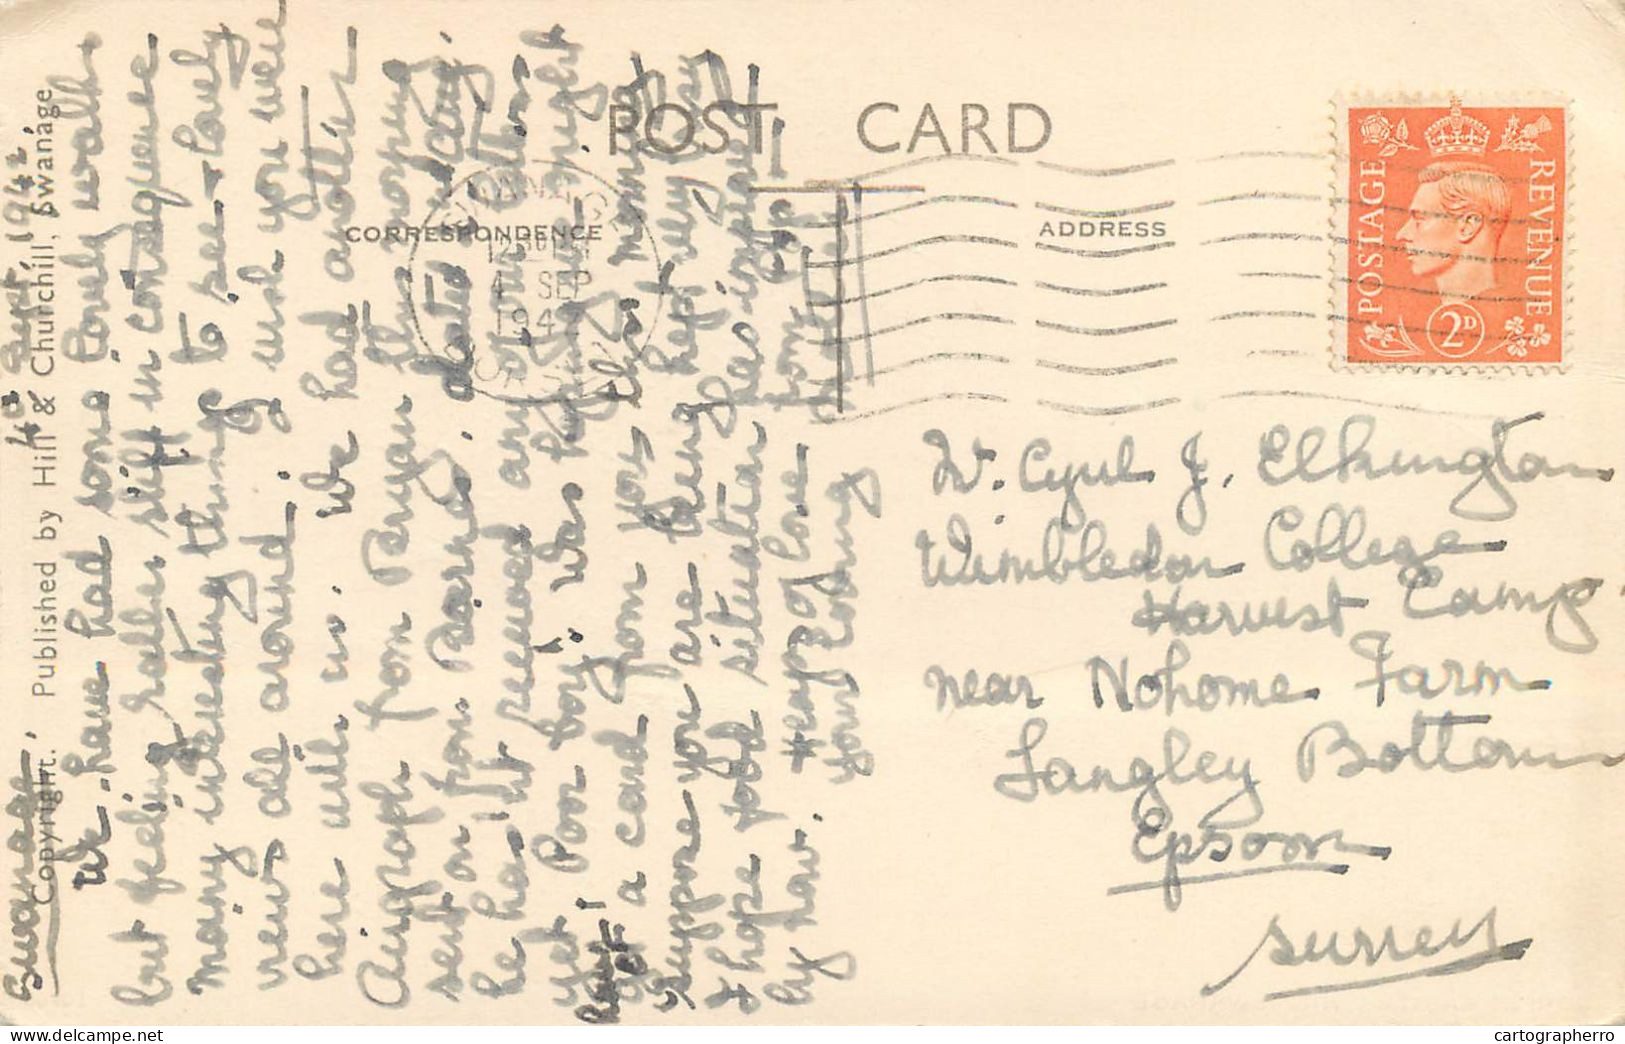 POST CARD
CORRESPONDENCE
ADDRESS
POSTAGE
REVENUE
2D
SWANAGE
4 SEP
1942
DORSET
Copyright. Published by Hill & Churchill, Swanage
Swanage. 4th Sept. 1942.
We have had some lovely walks
but feeling rather stiff in consequence
many interesting things to see & lovely
views all around. I wish you were
here with us. We had another
Airgraph from Bryan this morning
sent on from Barnes. dated
he hasn't received any of our letters
yet. Poor boy. Was hoping we might
get a card from you this morning
have!
Suppose you are being kept very busy
& hope food situation has improved
by now. Heaps of love from
your loving
Mr. Cyril J. Elkington
Wimbledon College
Harvest Camp
near Nohome Farm
Langley Bottom
Epsom
Surrey
cartographerro